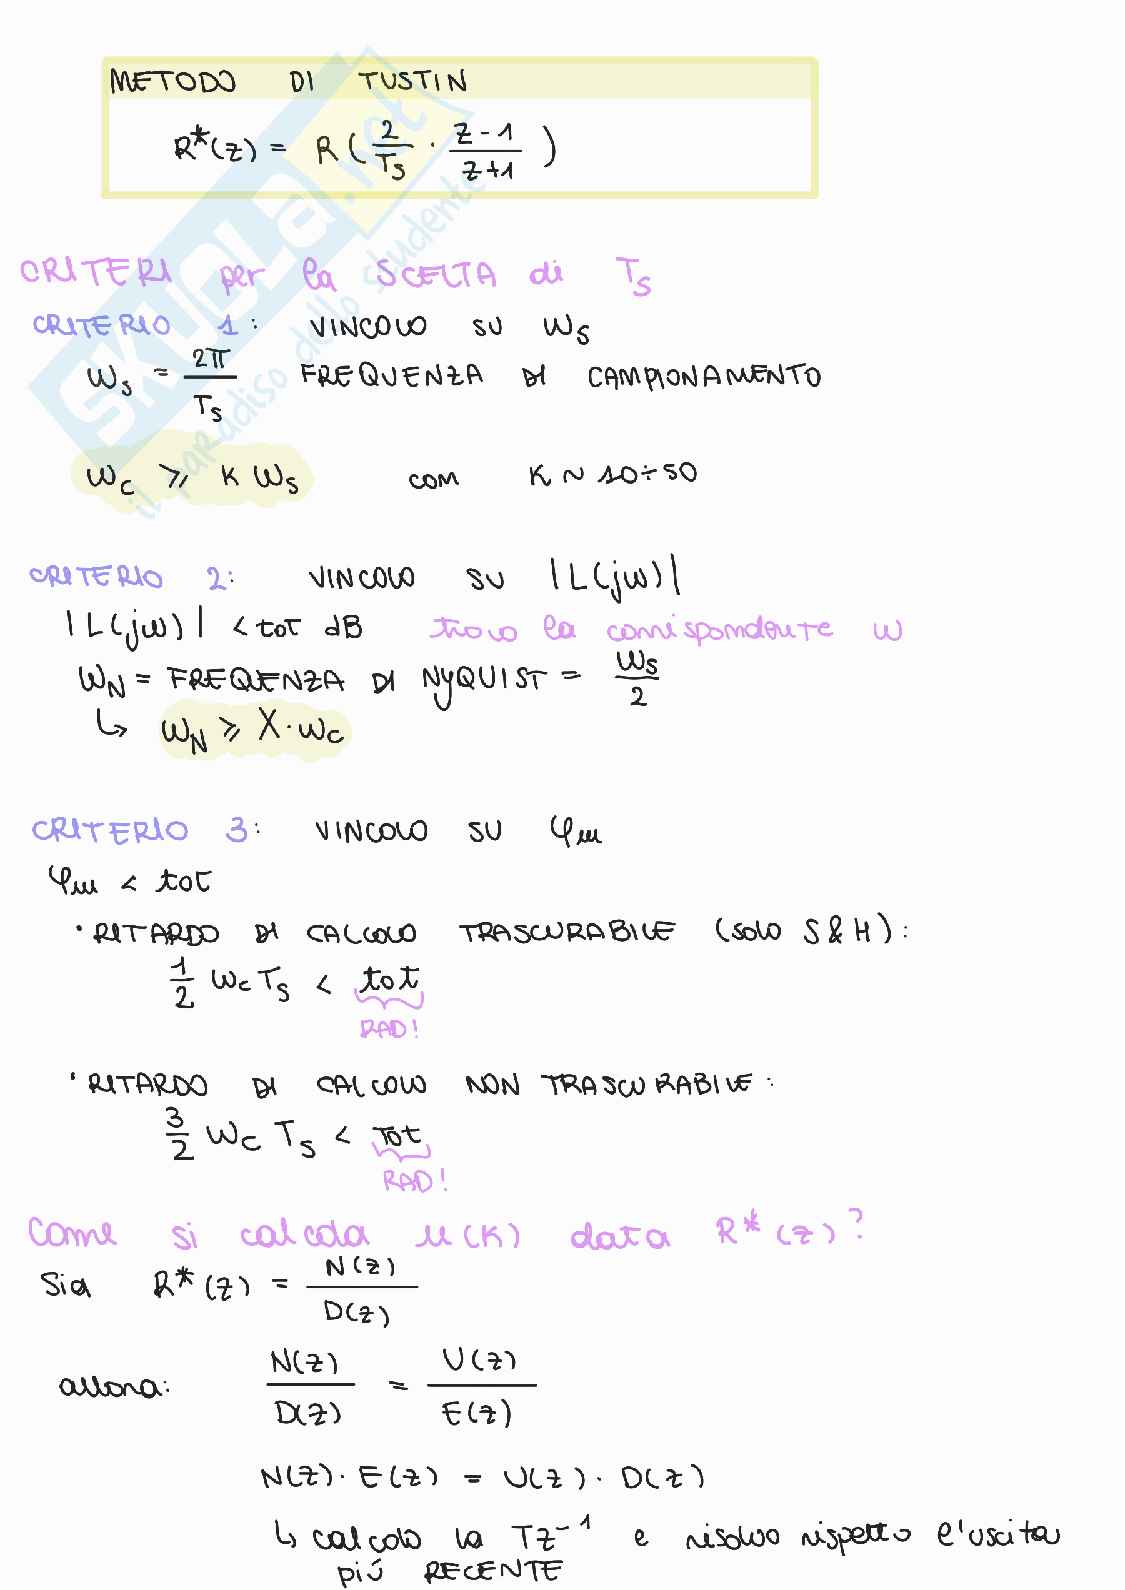 METODO DI TUSTIN
R*(z) = R ( 2/Ts · z-1/z+1 )
SKUOLA.net
il paradiso dello studente
CRITERI per la SCELTA di Ts
CRITERIO 1: VINCOLO SU ωs
ωs = 2π/Ts FREQUENZA DI CAMPIONAMENTO
ωc ⩾ K ωs con K ~ 10÷50
CRITERIO 2: VINCOLO SU |L(jω)|
|L(jω)| < tot dB trovo la corrispondente ω
ωN = FREQUENZA DI NYQUIST = ωs/2
↳ ωN ⩾ X·ωc
CRITERIO 3: VINCOLO SU φm
φm < tot
· RITARDO DI CALCOLO TRASCURABILE (solo S&H):
1/2 ωc Ts < tot
RAD!
· RITARDO DI CALCOLO NON TRASCURABILE:
3/2 ωc Ts < tot
RAD!
Come si calcola u(K) data R*(z)?
Sia R*(z) = N(z)/D(z)
allora: N(z)/D(z) = U(z)/E(z)
N(z)·E(z) = U(z)·D(z)
↳ calcolo la TZ⁻¹ e risolvo rispetto l'uscita
più RECENTE